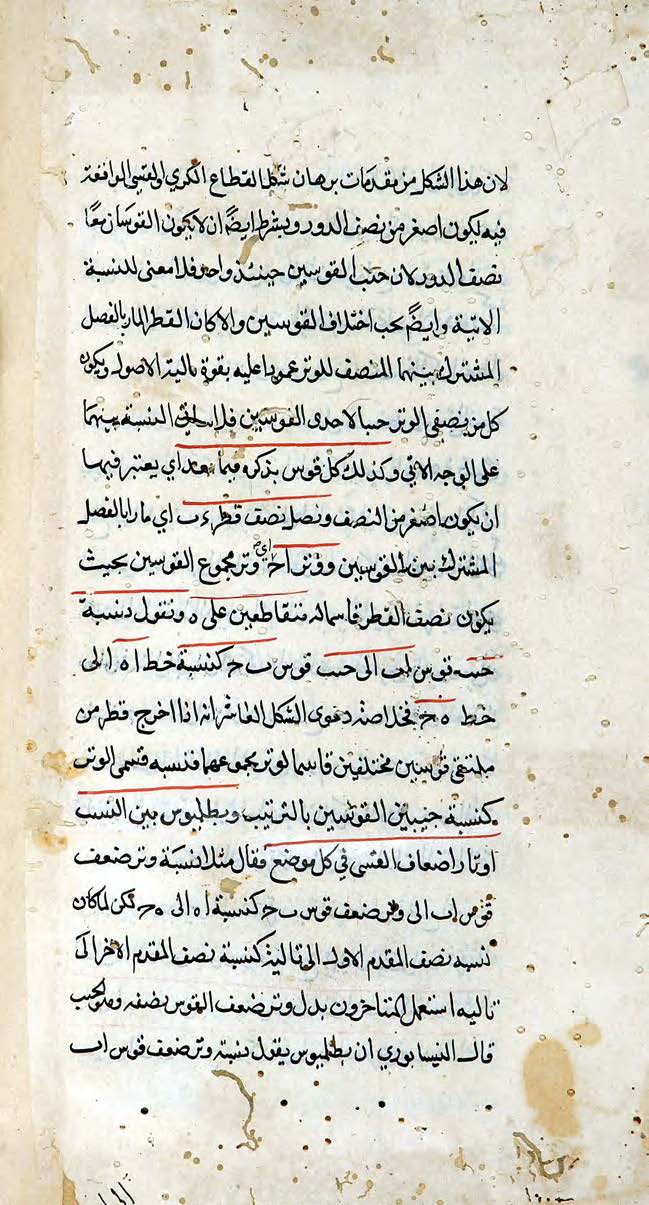 لان هذا الشكل من مقدمات برهان شكل القطاع الكري او القسي الواقعة
فيه يكون اصغر من نصف الدور ويشرط ايضا ان لا يكون القوسان معا
نصف الدور لان جيب القوسين حينئذ واحد فلا معنى للنسبة
الاتية وايضا يجب اختلاف القوسين والا كان القطر المار بالفصل
المشترك بينهما المنصف للوتر عمودا عليه بقوة ثالثة الاصول ويكون
كل من نصفي الوتر جيبا لاحدى القوسين فلا النسبة بينهما
على الوجه الاتي وكذلك كل قوس بذكره فيما بعد اي يعتبر فيها
ان يكون اصغر من النصف ونصل نصف قطر ء ب اي مارا بالفصل
المشترك بين القوسين ووتر ا ح اي وتر مجموع القوسين بحيث
يكون نصف القطر قاسما له متقاطعين على ه ونقول نسبة
جيب قوس اب الى جيب قوس ب ح كنسبة خط ا ه الى
خط ه ح فخلاصة دعوى الشكل العاشر انه اذا اخرج قطر من
ملتقى قوسين مختلفين قاسما لوتر مجموعهما فنسبة قسمي الوتر
كنسبة جيبين القوسين بالترتيب وبطلميوس بين النسب
اوتار اضعاف القسي في كل موضع فقال مثلا نسبة وتر ضعف
قوس اب الى وتر ضعف قوس ب ح كنسبة ا ه الى ه ح لكن لما كان
نسبة نصف المقدم الاول الى تاليه كنسبة نصف المقدم الاخر الى
تاليه استعمل المتاخرون بدل وتر ضعف القوس نصفه وهو الجيب
قال النيسابوري ان بطلميوس يقول نسبة وتر ضعف قوس اب